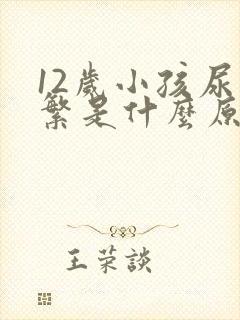 12歲小孩尿
繁是什麼原
王荣談